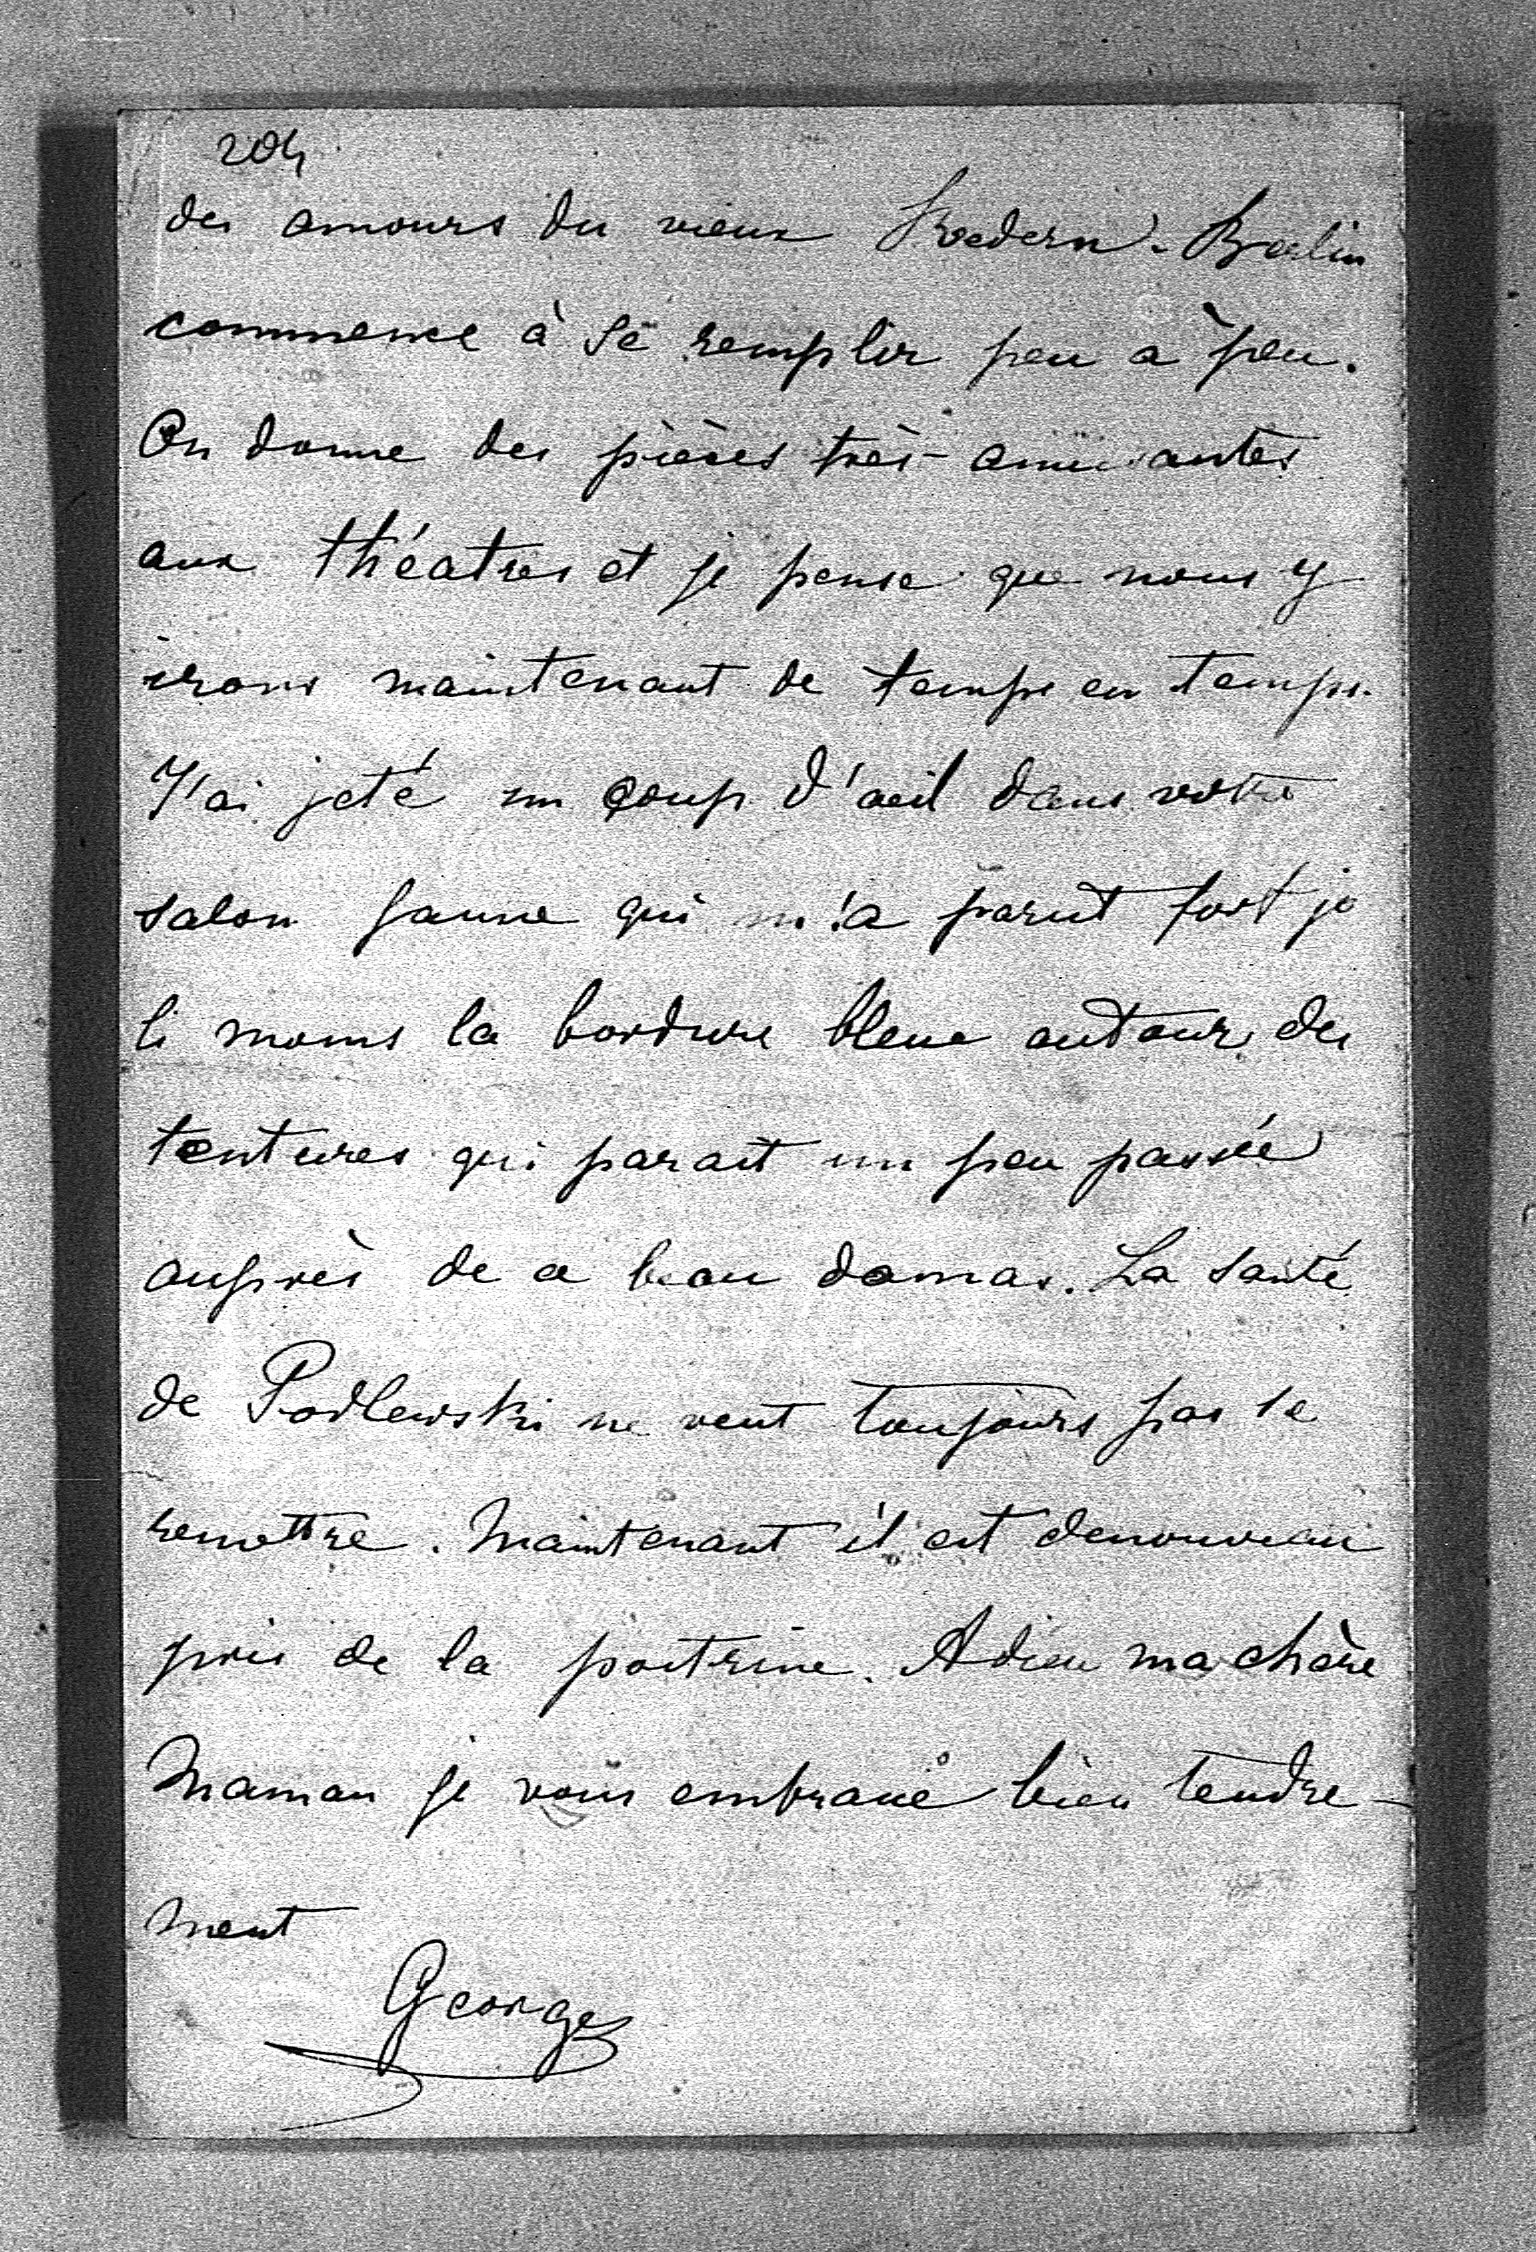 204
des amours du vieux Roedern. Berlin
commence à se remplir peu a peu.
On donne des pièces très-amusantes
aux théatres et je pense que nous y
irons maintenant de temps en temps.
J'ai jeté un coup d'œil dans votre
salon jaune qui m'a parut fort jo
li moins la bordure bleue autour des
tentures qui parait un peu passée
auprès de ce beau damas. La santé
de Podlewski ne veut toujours pas se
remettre. Maintenant il est denouveau
pris de la poitrine. Adieu ma chère
Maman je vous embrasse bien tendre-
ment
George